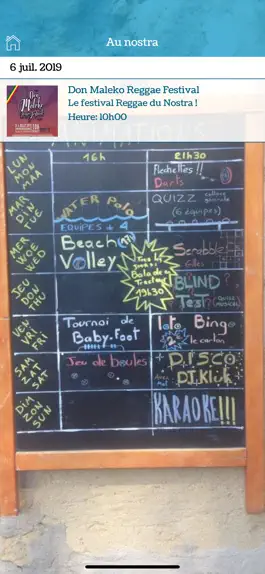 Au nostra
6 juil. 2019
Don Maleko Reggae Festival
Le festival Reggae du Nostra !
Heure: 10h00
Don
Maleko
16h
21h30
LUN
MON
MAA
Flechettes !!
Darts
MAR
DIN
TUE
WATER Polo
EQUIPES = 4
QUIZZ culture
generale
(6 équipes)
MER
WOE
WED
Beach
Volley
Scrabble
Gilles
JEU
DON
THU
19h30
BLIND
Test
VEN
VRI
FRI
Tournoi de
Baby-foot
loto Bingo
2€ le carton
SAM
ZAT
SAT
Jeu de boules
DISCO
DJ Klick
DIM
ZON
SUN
KARAOKE!!!